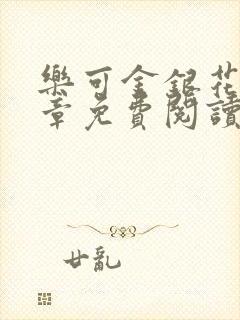 樂可金銀花
章免費閱讀
廿亂